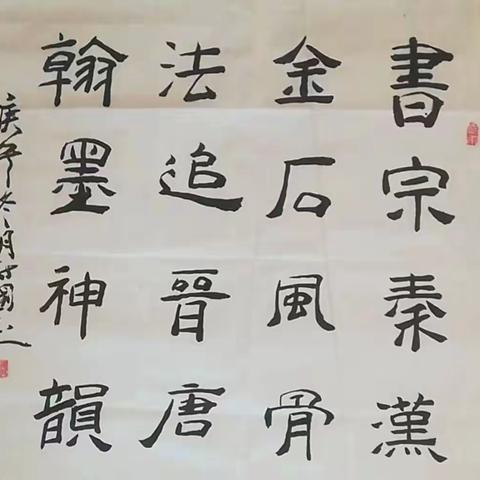 書宗秦漢
金石風骨
法追晉唐
翰墨神韻
冬月